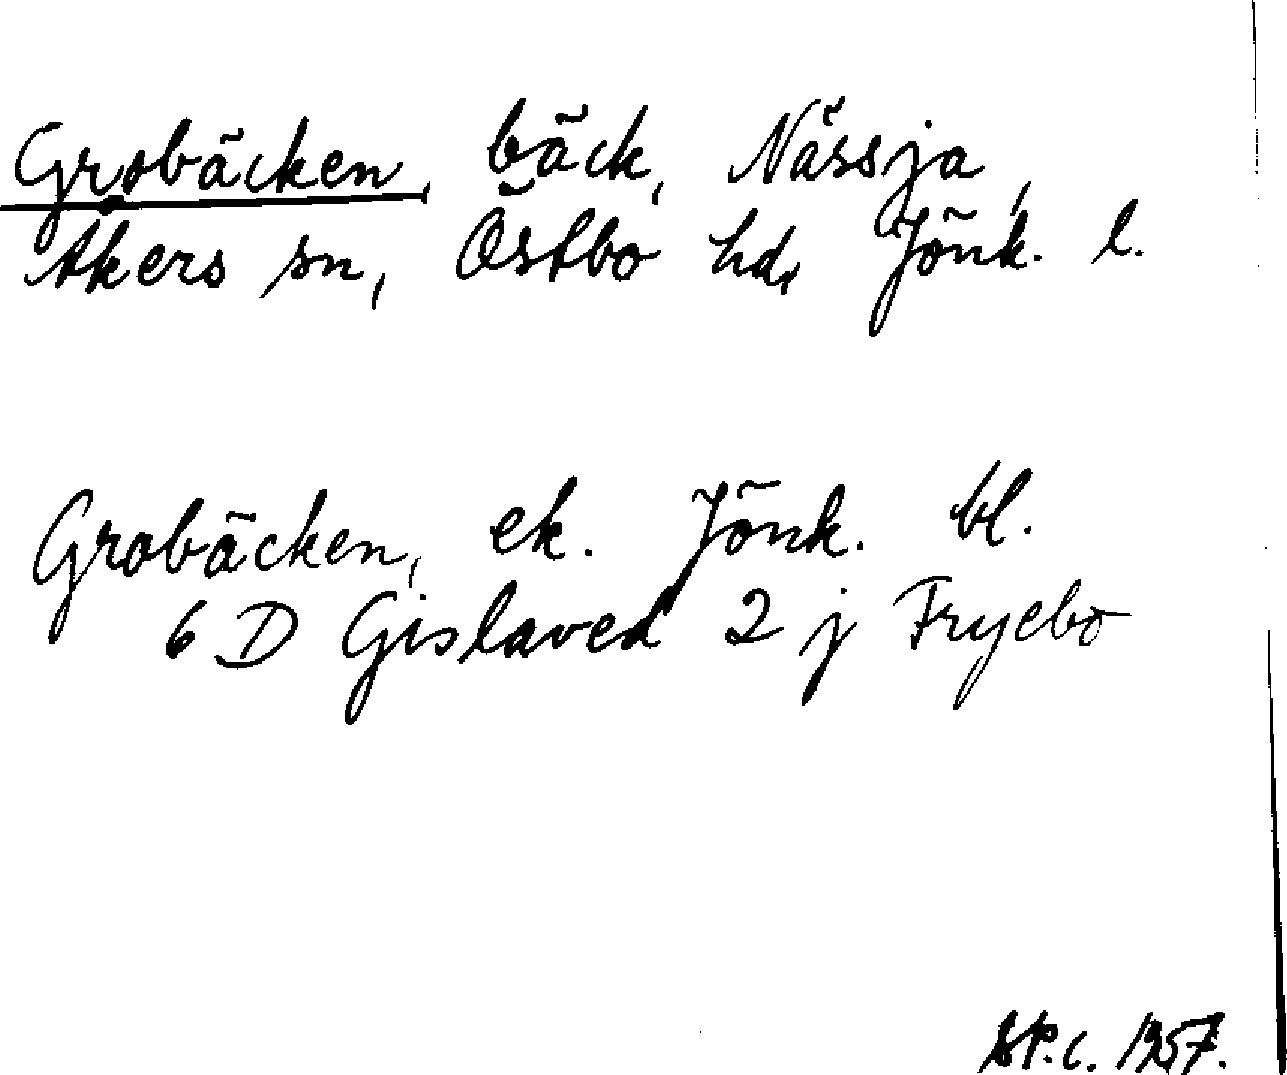 Grobäcken, bäck, Nässja,
Åkers sn, Östbo hd, Jönk. l.
Grobäcken, ek. Jönk. bl.
6 D Gislaved 2 j Fryebo
1957.